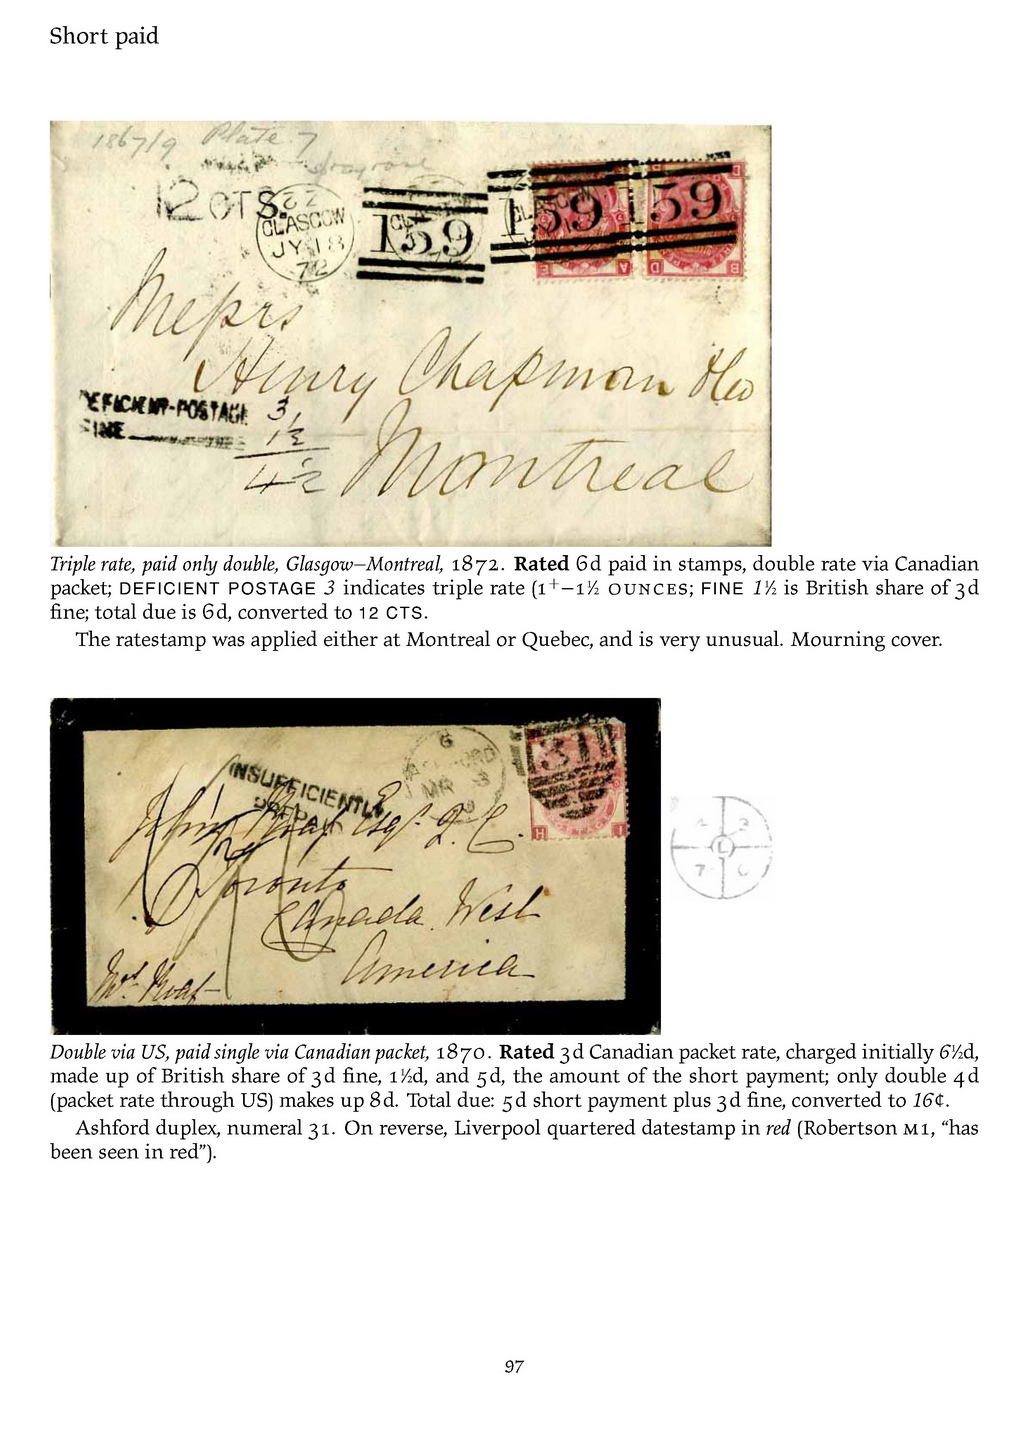 Short paid
1867/9 Plate 7
12 CTS.
22
GLASGOW
JY 18
72
159
159
159
Messrs
Henry Chapman & Co
DEFICIENT-POSTAGE 3
FINE 1½
4½
Montreal
Triple rate, paid only double, Glasgow–Montreal, 1872. Rated 6d paid in stamps, double rate via Canadian
packet; DEFICIENT POSTAGE 3 indicates triple rate (1⁺–1½ OUNCES; FINE 1½ is British share of 3d
fine; total due is 6d, converted to 12 CTS.
The ratestamp was applied either at Montreal or Quebec, and is very unusual. Mourning cover.
G
ASHFORD
MR 3
31
INSUFFICIENTLY
John Roaf Esqr. Q.C.
Toronto
Canada West
America
Mrs. Roaf
L
Double via US, paid single via Canadian packet, 1870. Rated 3d Canadian packet rate, charged initially 6½d,
made up of British share of 3d fine, 1½d, and 5d, the amount of the short payment; only double 4d
(packet rate through US) makes up 8d. Total due: 5d short payment plus 3d fine, converted to 16¢.
Ashford duplex, numeral 31. On reverse, Liverpool quartered datestamp in red (Robertson M1, “has
been seen in red”).
97